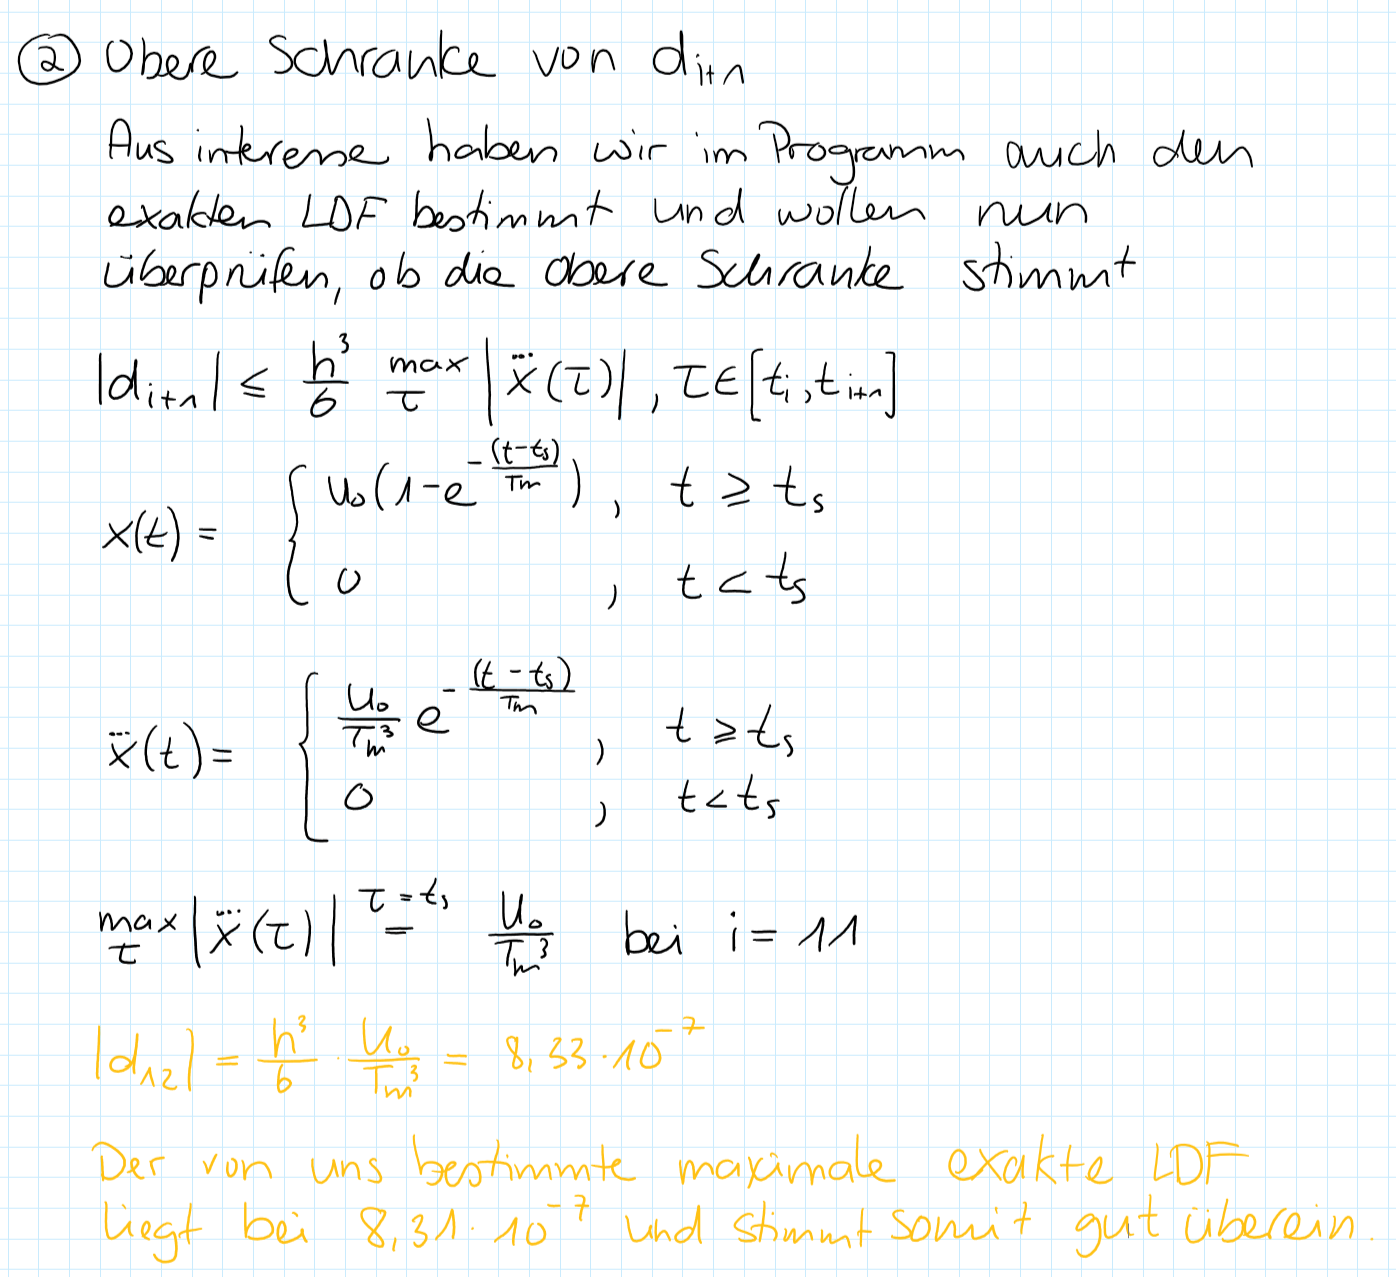 ② Obere Schranke von d_{i+1}
Aus interesse haben wir im Programm auch den
exakten LDF bestimmt und wollen nun
überprüfen, ob die obere Schranke stimmt
|d_{i+1}| ≤ h³/6 max_τ |x⃛(τ)| , τ∈[t_i, t_{i+1}]
x(t) = { u₀(1-e^{-(t-t_s)/T_m}) , t ≥ t_s
0 , t < t_s
x⃛(t) = { u₀/T_m³ e^{-(t-t_s)/T_m} , t ≥ t_s
0 , t < t_s
max_τ |x⃛(τ)| =^{τ=t_s} u₀/T_m³ bei i = 11
|d₁₂| = h³/6 · u₀/T_m³ = 8,33·10⁻⁷
Der von uns bestimmte maximale exakte LDF
liegt bei 8,31·10⁻⁷ und stimmt somit gut überein.